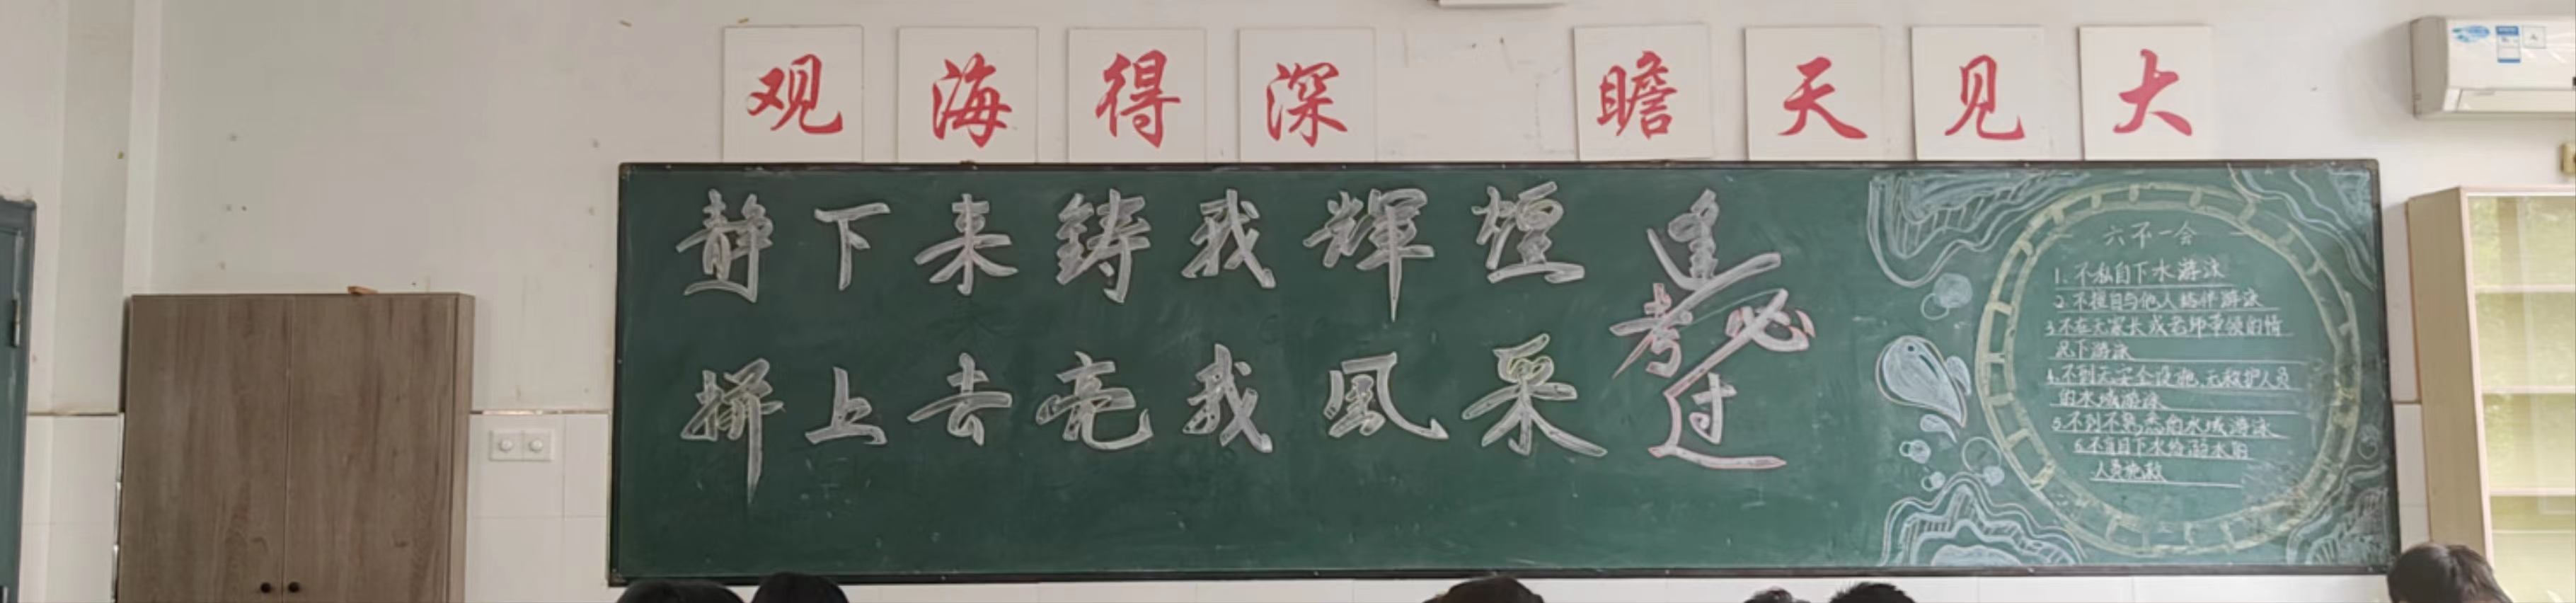 观海得深 瞻天见大
静下来铸我輝煌
拼上去亮我風采
逢考必过
六不一会
1.不私自下水游泳
2.不擅自与他人结伴游泳
3.不在无家长或老师带领的情
况下游泳
4.不到无安全设施、无救护人员
的水域游泳
5.不到不熟悉的水域游泳
6.不盲目下水给溺水的
人员施救